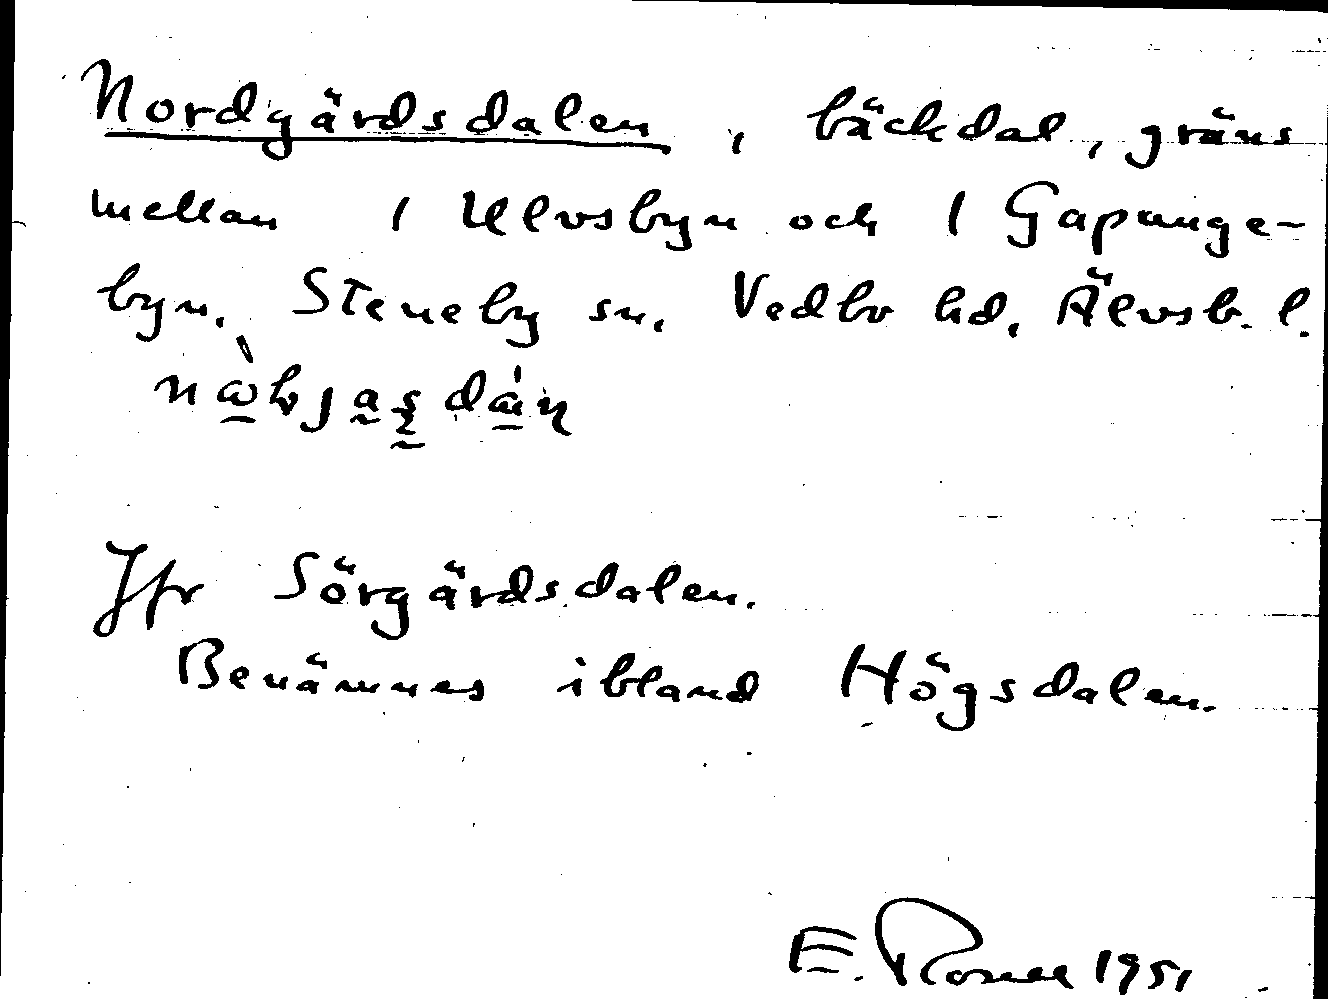 Nordgärdsdalen, bäckdal, gräns
mellan 1 Ulvsbyn och 1 Gapunge-
byn. Steneby sn. Vedbo hd. Älvsb. l.
Jfr Sörgärdsdalen.
Benämnes ibland Högsdalen.
E. Rosell 1951